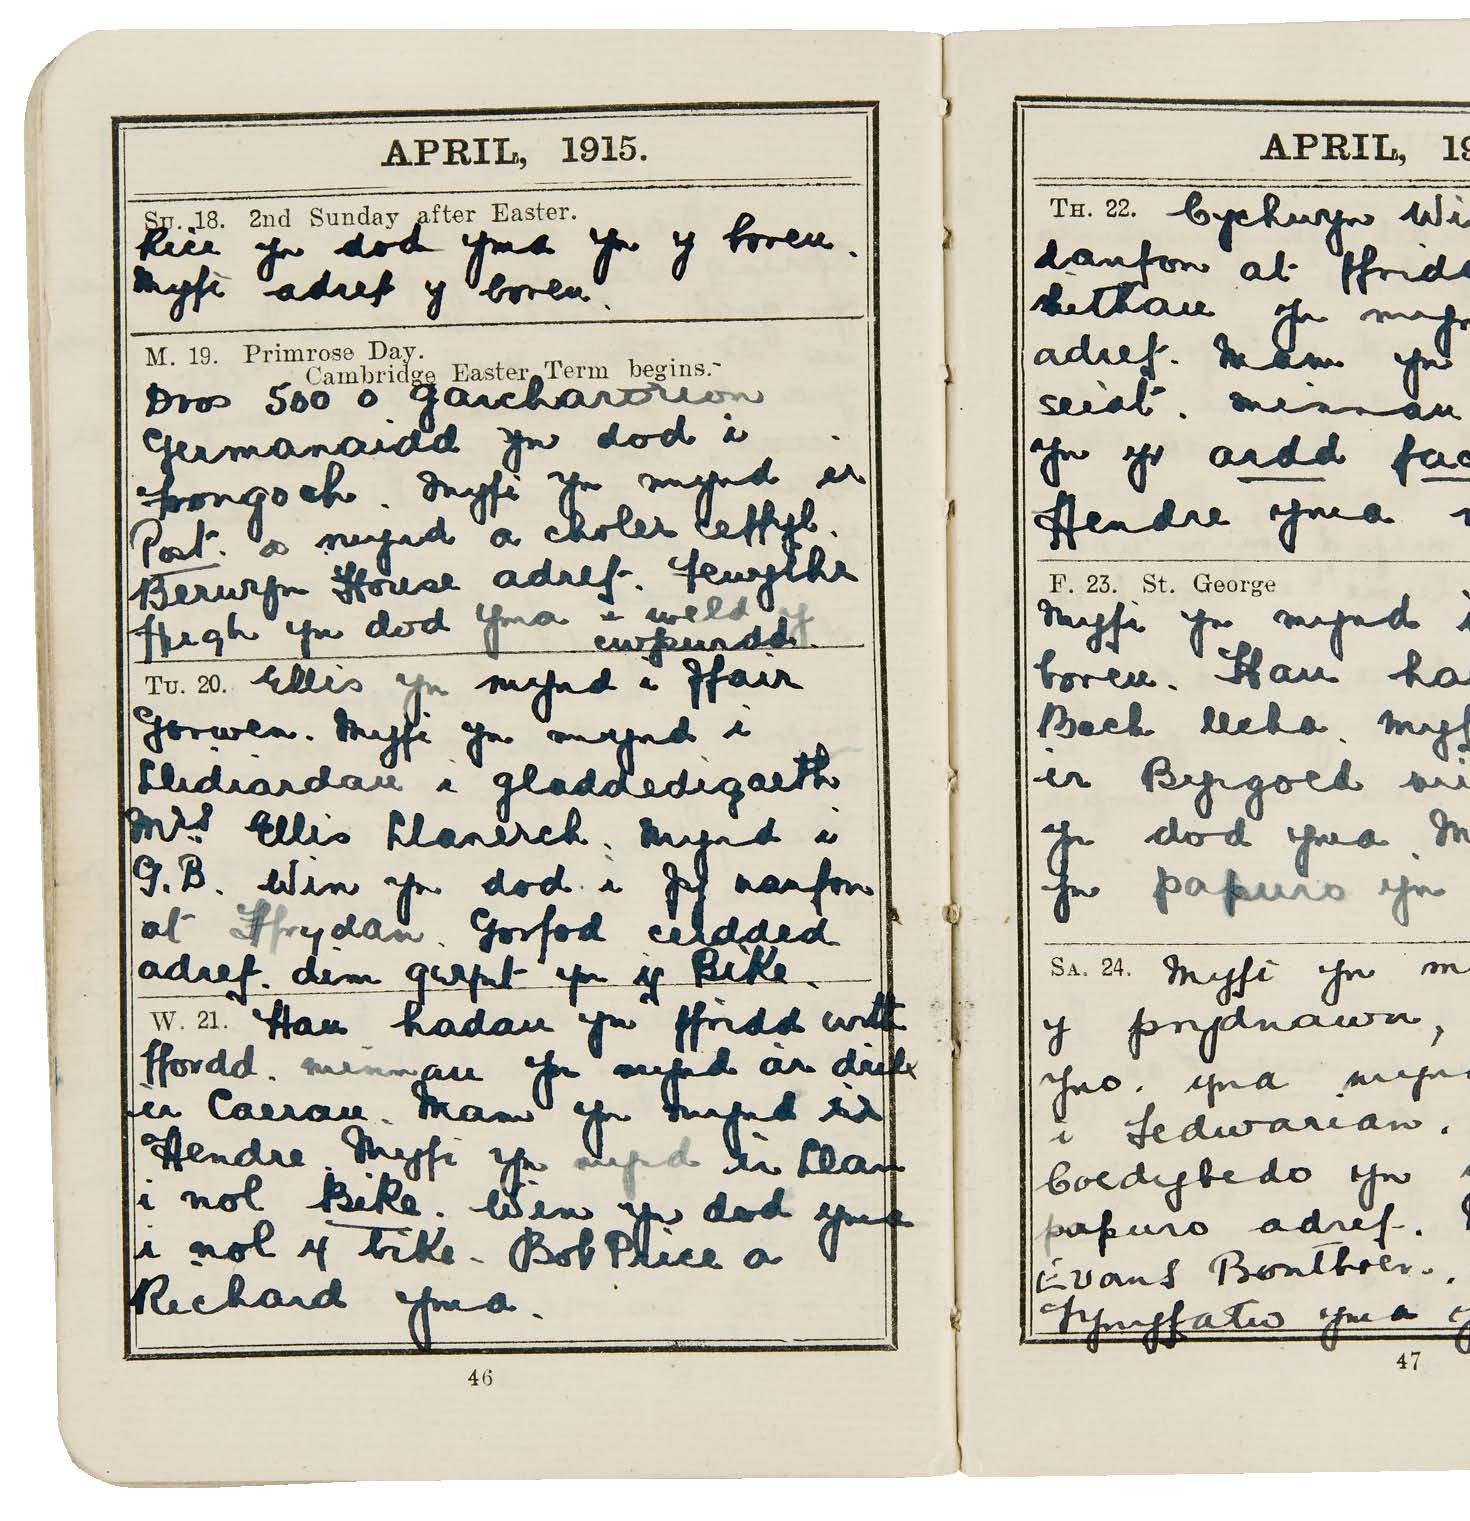 APRIL, 1915.
SU. 18. 2nd Sunday after Easter.
Rice yn dod yma yn y boreu.
Myfi adref y boreu.
M. 19. Primrose Day.
Cambridge Easter Term begins.
Dros 500 o garcharorion
Germanaidd yn dod i
frongoch. Myfi yn mynd ir
Post. a mynd a choler ceffyl.
Berwyn House adref.
Hugh yn dod yma i weld y
cwpwrdd.
TU. 20. Ellis yn mynd i Ffair
Gorwen. Myfi yn mynd i
Llidiardau i gladdedigaeth
Mrs Ellis Llanerch. Mynd i
G.B. Win yn dod i fy nanfon
at Ffrydan. Gorfod cerdded
adref. dim gwynt yn y Bike.
W. 21. Hau hadau yn ffridd wrth
ffordd. minnau yn mynd ar
ir Caerau. Mam yn mynd ir
Hendre. Myfi yn mynd ir Llan
i nol Bike. Win yn dod yma
i nol y bike. Bob Price a
Richard yma.
46
APRIL, 19
TH. 22. Cychwyn Wi
danfon at ffridd
bethau yn myn
adref. Mam yn
seiat. minnau
yn yr ardd fac
Hendre yma
F. 23. St. George
Myfi yn mynd i
boreu. Hau ha
Bach Ucha. Myf
ir Byrgoed
yn dod yma. M
yn papuro yn
SA. 24. Myfi yn m
y prydnawn,
yno. yna myn
i Fedwarian.
Coedybedo yn
papuro adref.
Evans
yma y
47